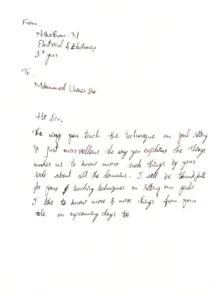 From,
Electrical & Electronics
3rd year
To,
Mohammed Sir
Hi Sir,
The way you teach the technique on goal setting
is just marvellous. The way you explains the things
makes us to know more such things by your
side about all the domains. I will be thankful
for your & teaching techniques on setting our goals
I like to know more & more things from your
side on upcoming days too